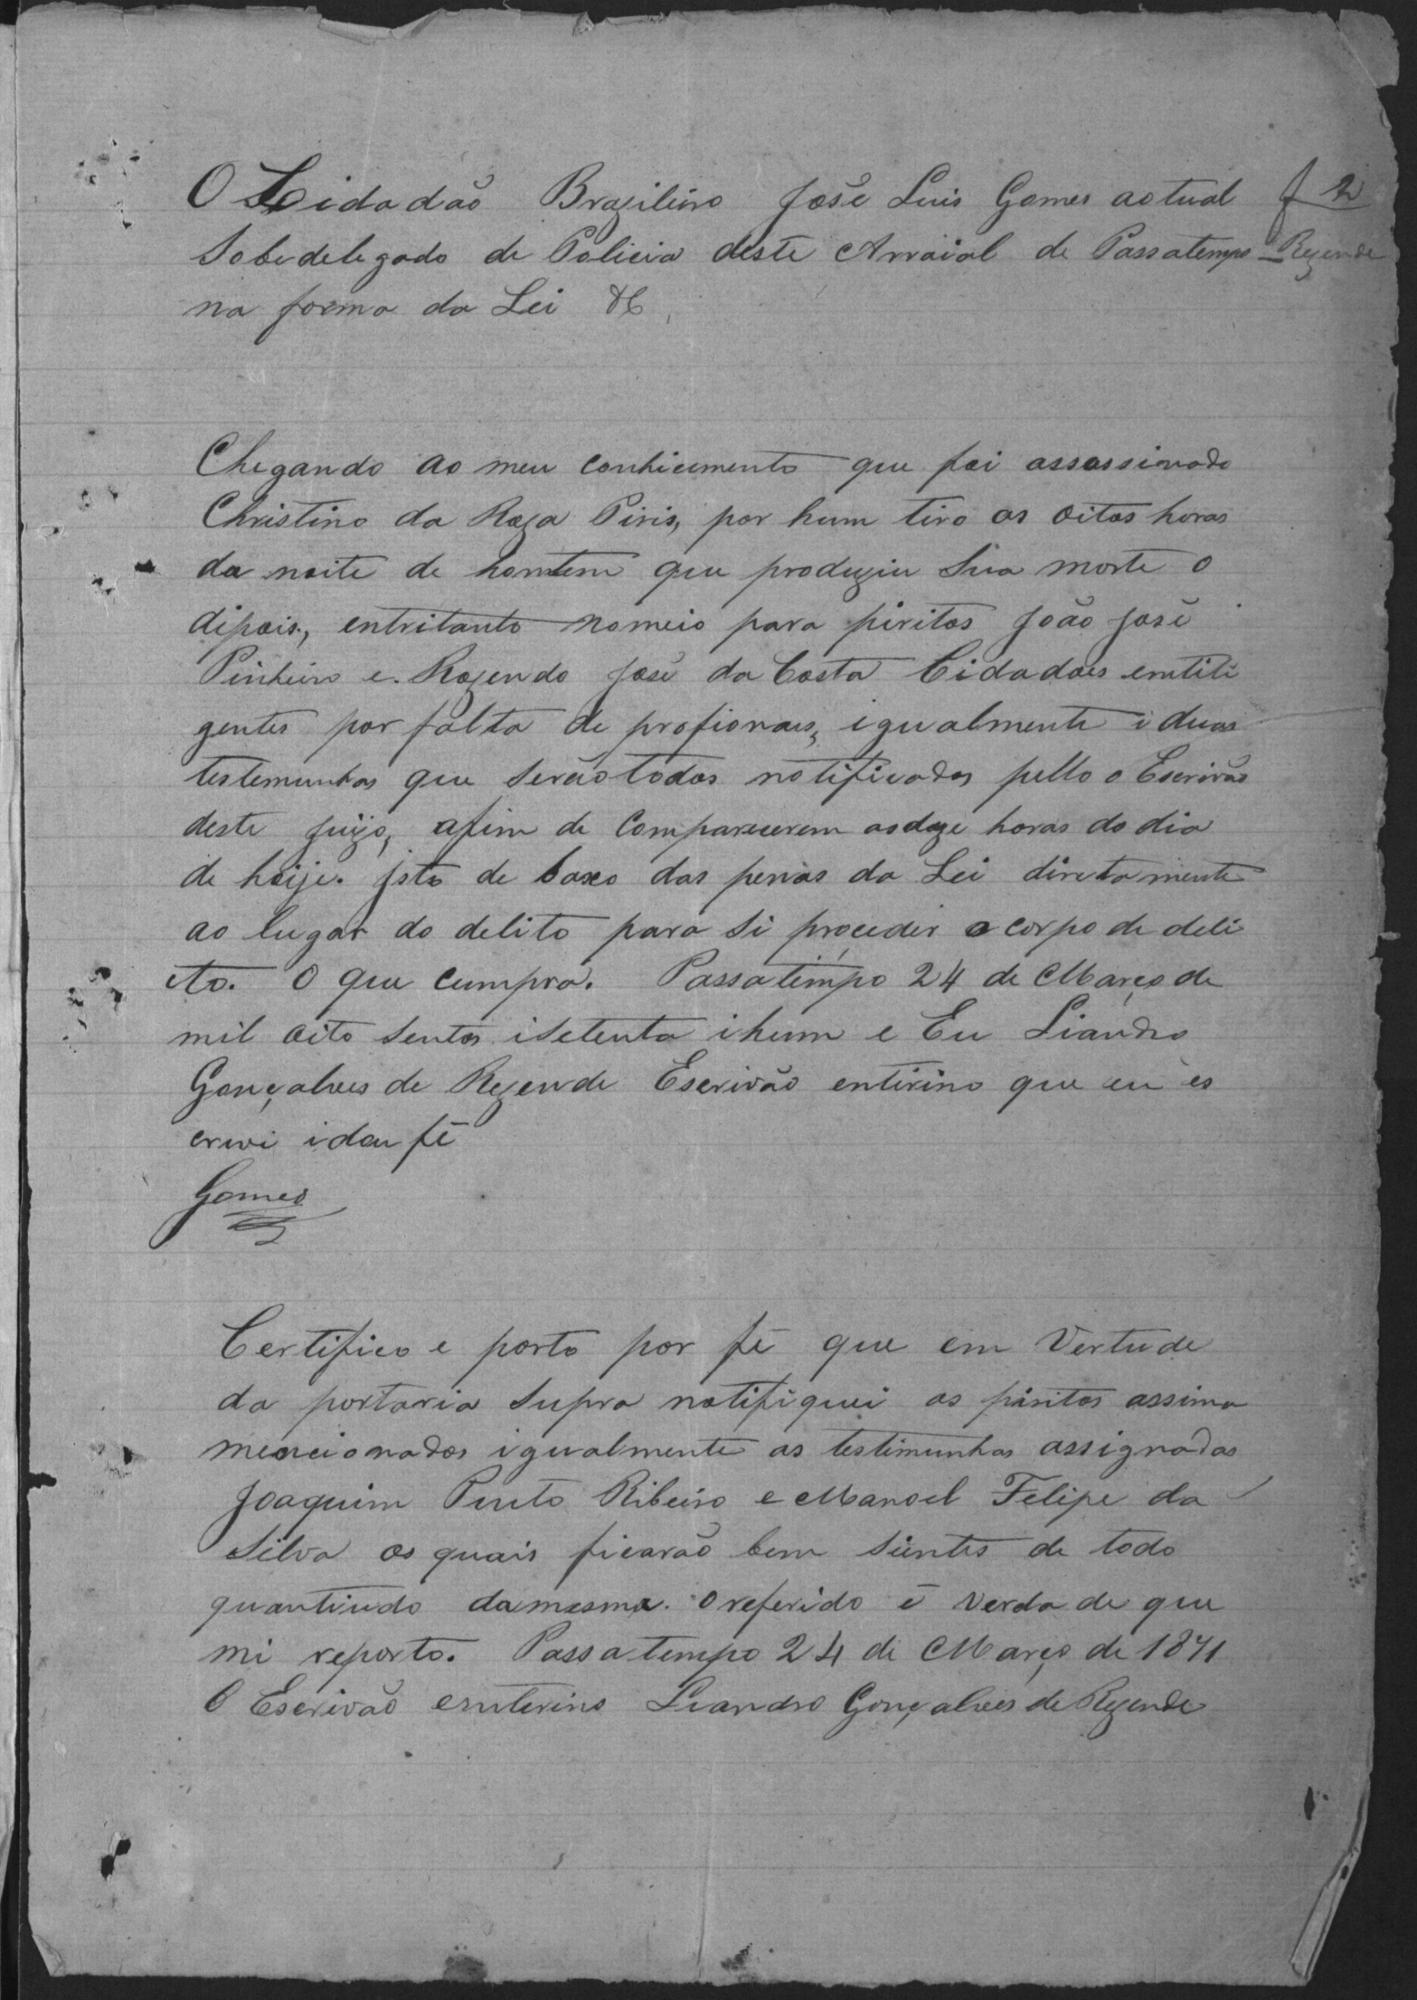 O Cidadão Brazileiro José Luis Gomes actual f 2
Sobdelegado de Policia deste Arraial de Passatempo Rezende
na forma da Lei &c,
Chegando ao meu conhicimento que foi assassinado
Christino da Roza Piris, por hum tiro as oitos horas
da noite de hontem que produziu sua morte o
dipois, entritanto nomeio para piritos João José
Pinheiro e. Rozendo José da Costa Cidadões entili
gentes por falta de profionaes, igualmente i duas
testemunhas que serão todos notificados pello o Escrivão
deste juizo, afim de comparecerem as doze horas do dia
de hoije. jsto de baxo das penas da Lei diretamente
ao lugar do delito para si proceder o corpo de deli
cto. O que cumpra. Passatimpo 24 de Março de
mil oito sentos i setenta i hum e Eu Liandro
Gonçalves de Rezende Escrivão entirino que eu es
crivi i dou fé
Gomes
Certifico e porto por fé que em Vertude
da portaria supra notifiquei os piritos assima
mencionados igualmente as testimunhas assignadas
Joaquim Pinto Ribeiro e Manoel Felipe da
Silva os quais ficarão bem sientes de todo
quantiudo da mesma. O referido é verda de que
mi reporto. Passatempo 24 de Março de 1871
O Escrivão enterino Leandro Gonçalves de Rezende